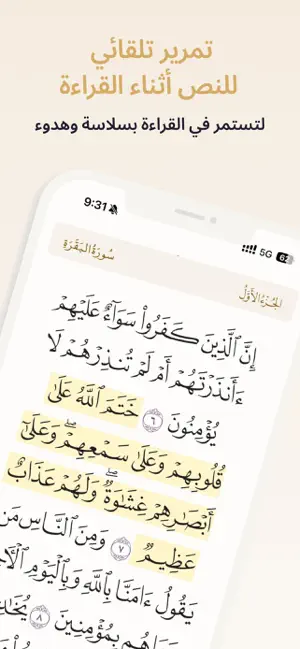 تمرير تلقائي
للنص أثناء القراءة
لتستمر في القراءة بسلاسة وهدوء
9:31
5G
سُورَةُ البَقَرَةِ
الجُزءُ الأَوَّلُ
إِنَّ ٱلَّذِينَ كَفَرُوا۟ سَوَآءٌ عَلَيْهِمْ
ءَأَنذَرْتَهُمْ أَمْ لَمْ تُنذِرْهُمْ لَا
يُؤْمِنُونَ ٦ خَتَمَ ٱللَّهُ عَلَىٰ
قُلُوبِهِمْ وَعَلَىٰ سَمْعِهِمْ ۖ وَعَلَىٰٓ
أَبْصَـٰرِهِمْ غِشَـٰوَةٌ ۖ وَلَهُمْ عَذَابٌ
عَظِيمٌ ٧ وَمِنَ ٱلنَّاسِ مَن
يَقُولُ ءَامَنَّا بِٱللَّهِ وَبِٱلْيَوْمِ
هُم بِمُؤْمِنِينَ ٨